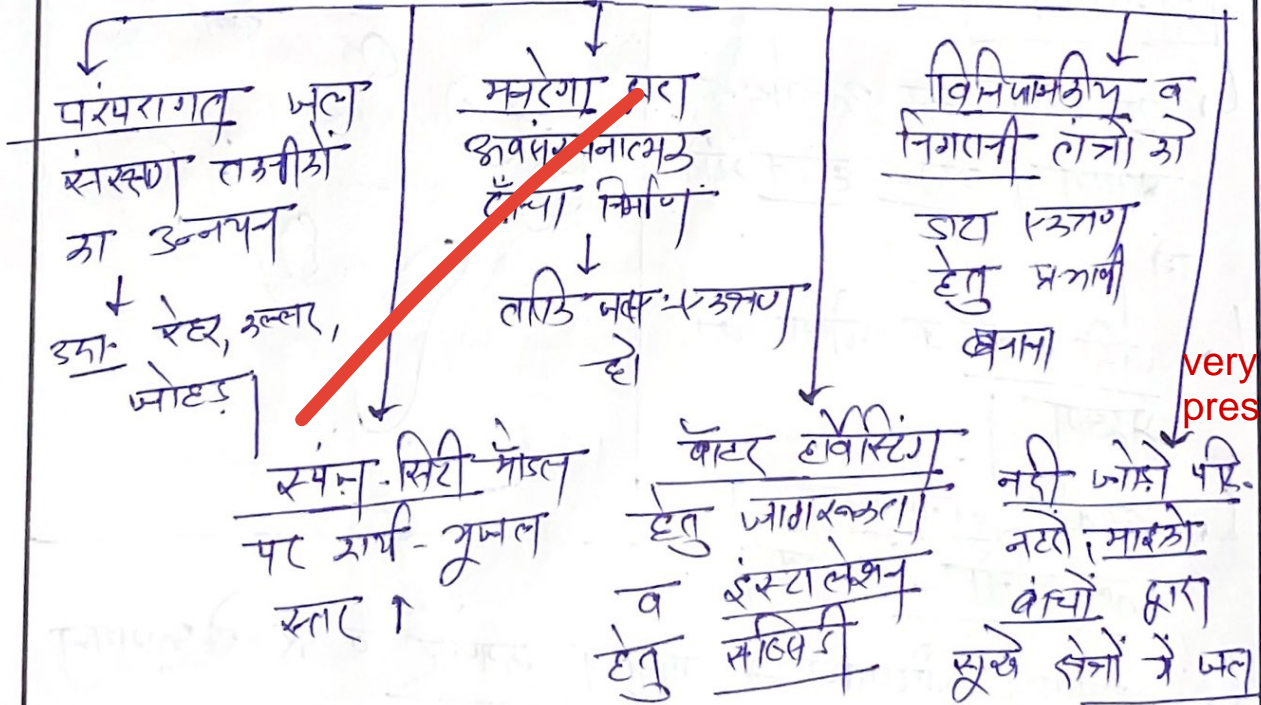 परंपरागत जल
संरक्षण तकनीकों
का उन्नयन
↓
उदा- रेहर, कल्लर,
जोहड़
मनरेगा द्वारा
अवसंरचनात्मक
ढाँचा निर्माण
↓
ताकि जल एकत्रण
हो।
विनियामकीय व
निगरानी तंत्रों को
डाटा एकत्रण
हेतु प्रभावी
बनाना
very
pres
स्पंज-सिटी मॉडल
पर कार्य - भूजल
स्तर ↑
वॉटर हार्वेस्टिंग
हेतु जागरूकता
व इंस्टालेशन
हेतु सब्सिडी
नदी जोड़ो परि-
माइको
बांधों द्वारा
सूखे क्षेत्रों में जल